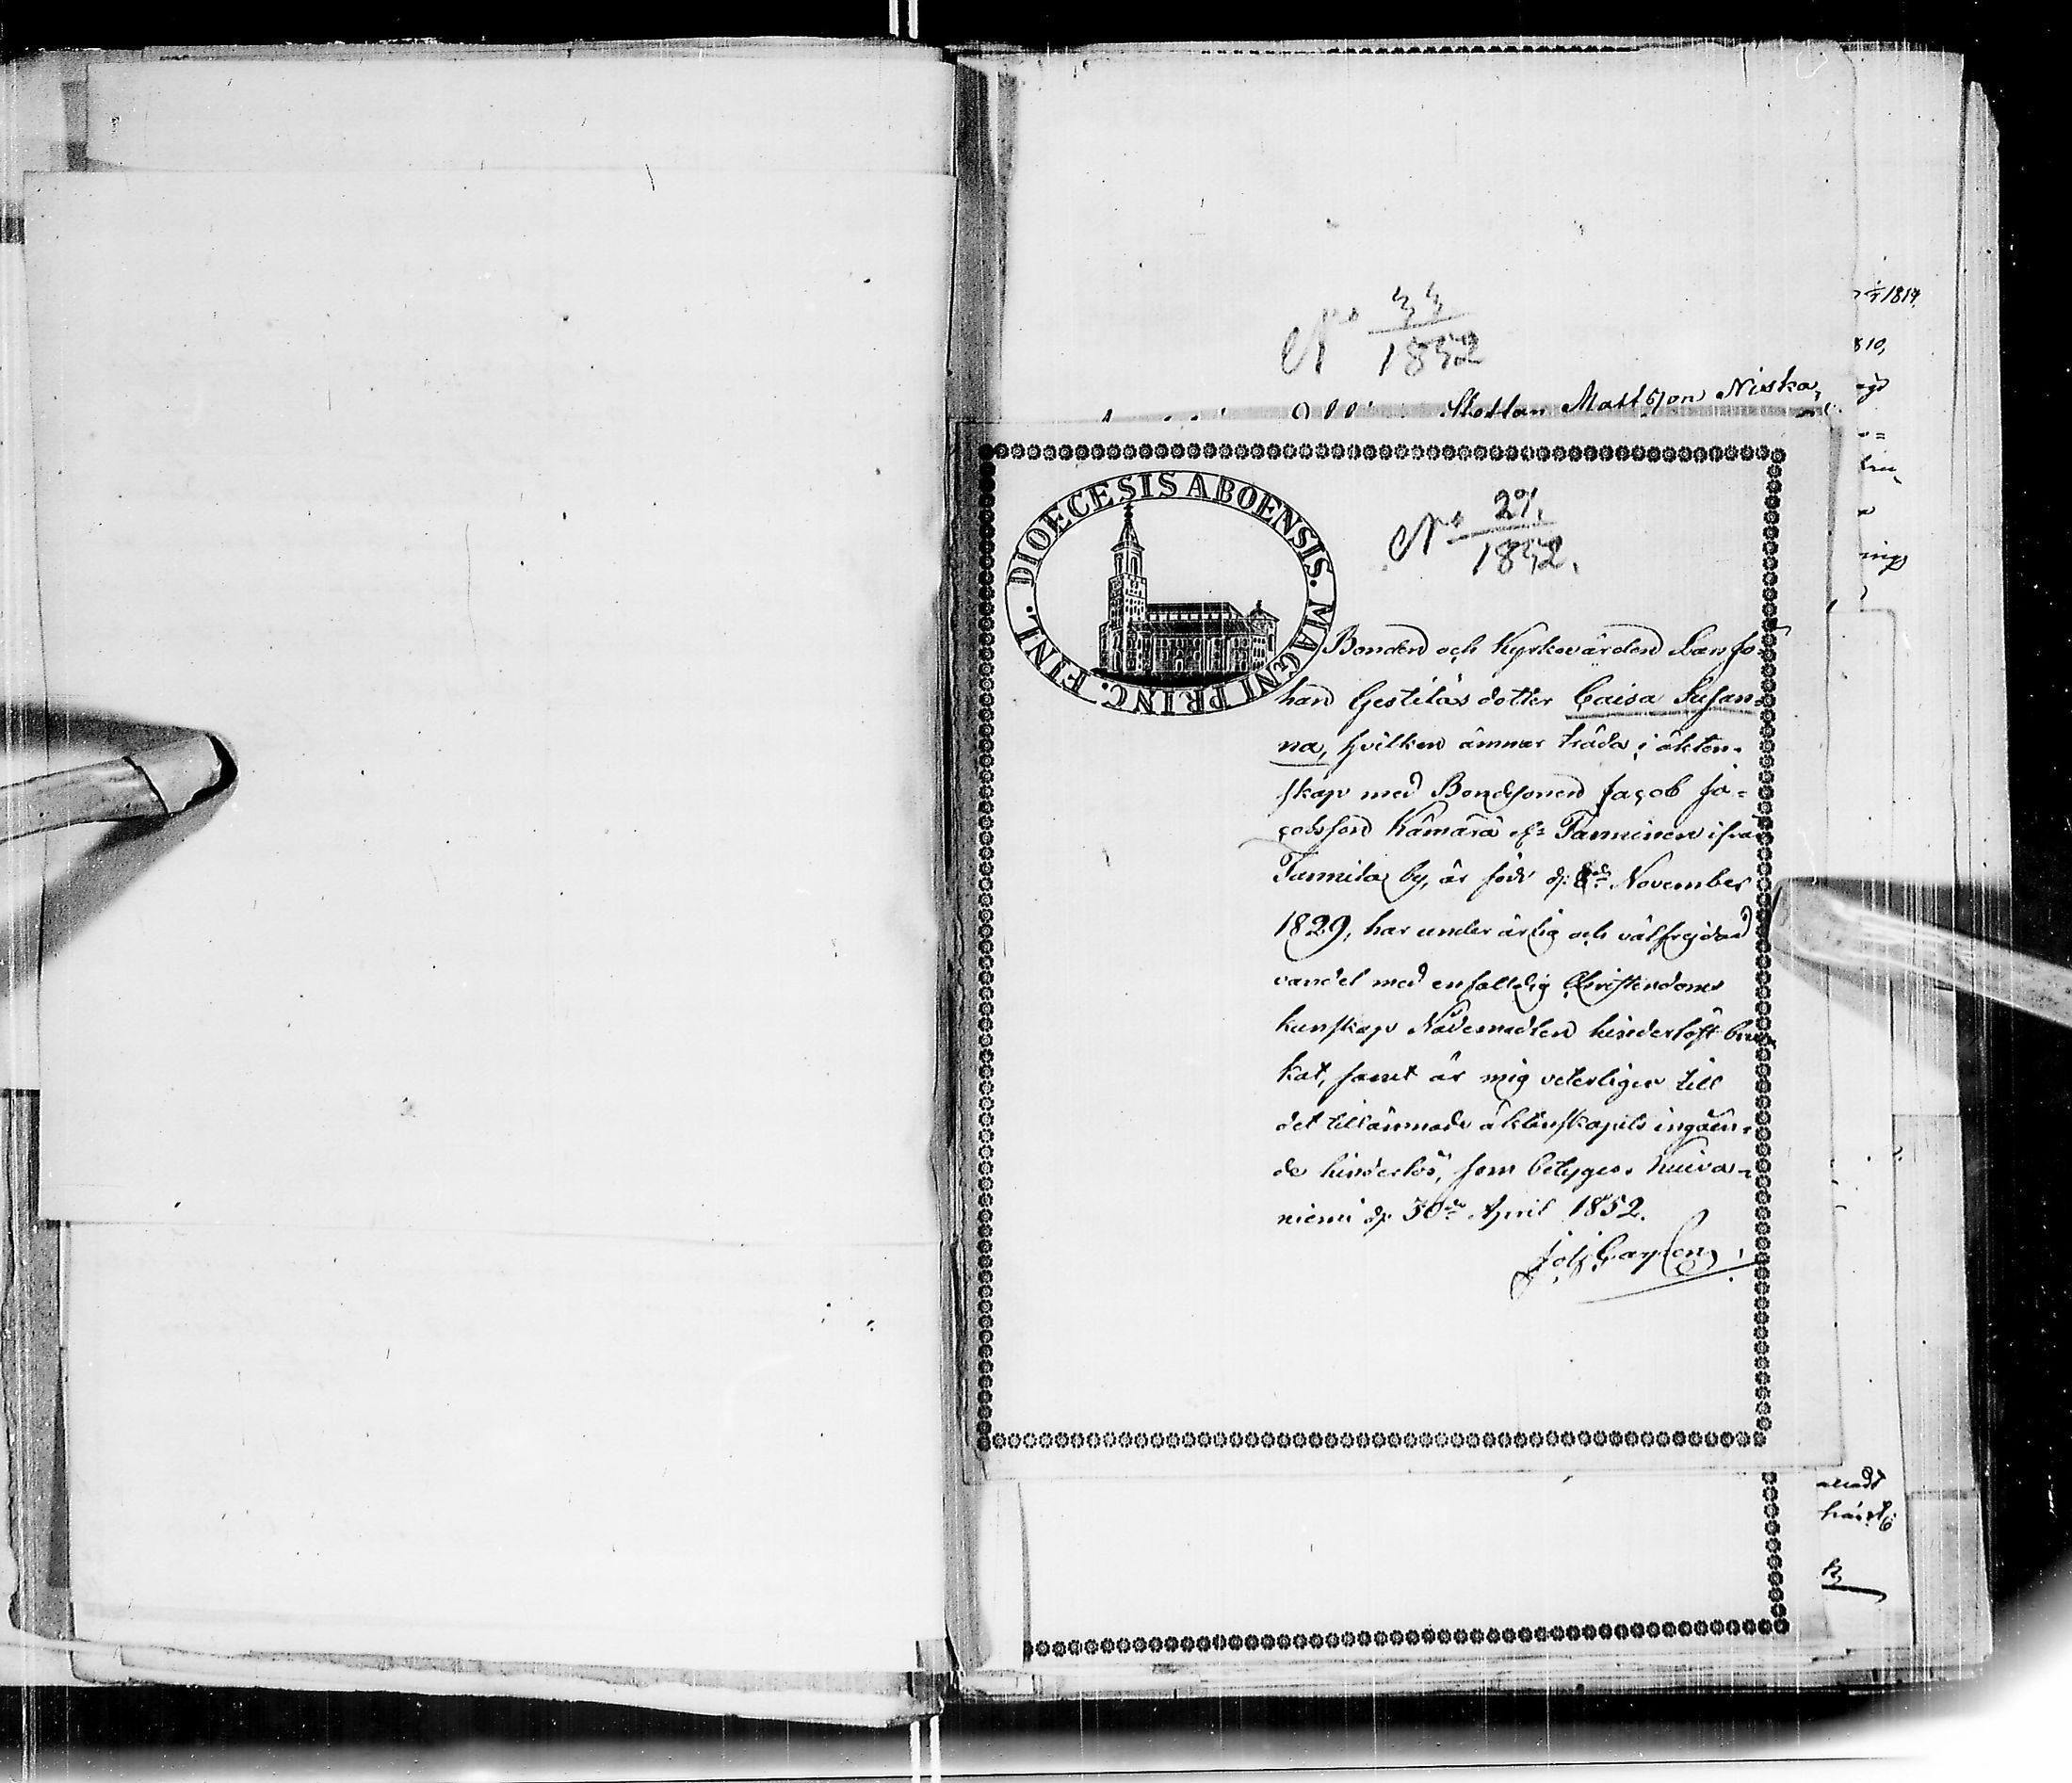 No 33
1852
Mattsson Niska,
DIOECESIS ABOENSIS. MAGNI PRINC. FINL.
No 29.
1852.
Bonden och Kyrkovärden Lars Jo-
han Gestiläs dotter Caisa Susan-
na, hvilken ämnar träda i äkten-
skap med Bondesonen Jacob Ja-
cobsson Kämärä eft Tanninen ifrån
Tannila by, är född d: November
1829, har under ärlig och välfrejdad
vandel med enfalldig Christendoms
kunskap Nådemedlen hinderlöst bru-
kat, samt är mig veterligen till
det tillämnade äktenskapets ingåen-
de hinderlös, som betygas. Kuiva-
niemi d: 30de April 1852.
Joh:
1817.
810,